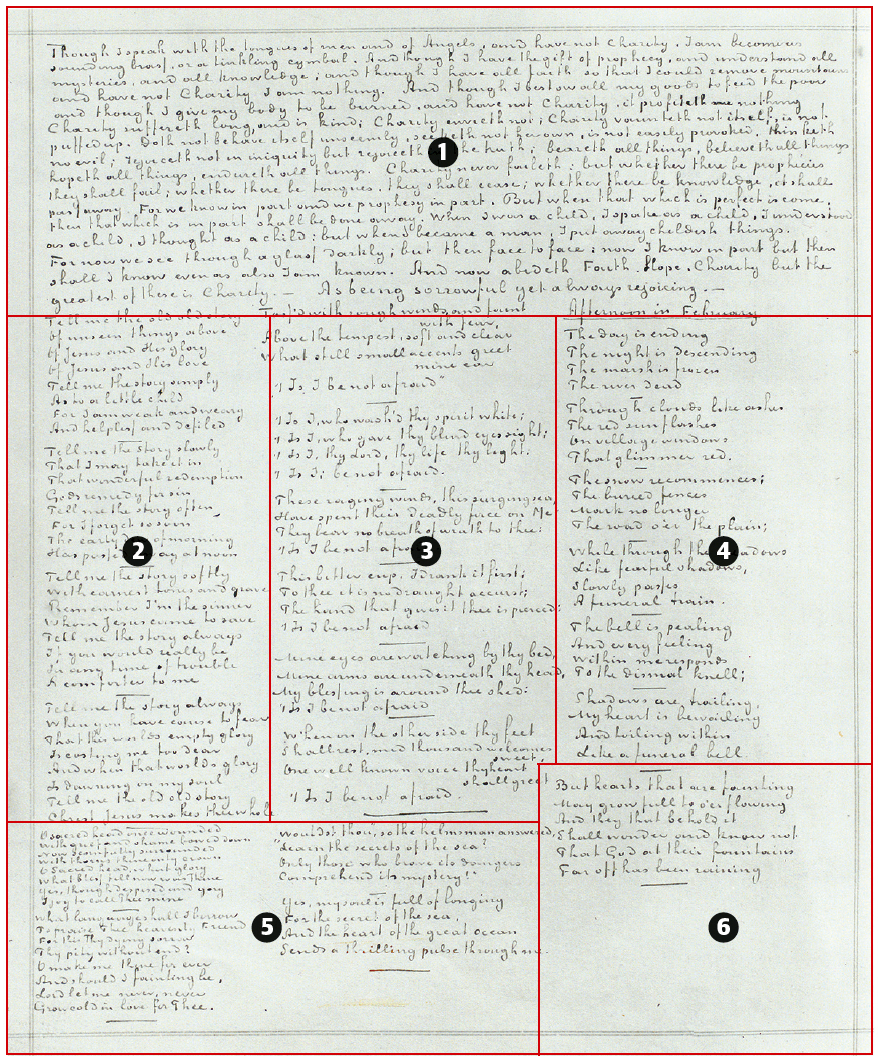 Though I speak with the tongues of men and of Angels, and have not Charity, I am become as
sounding brass, or a tinkling cymbal. And though I have the gift of prophecy, and understand all
mysteries, and all knowledge; and though I have all faith so that I could remove mountains
and have not Charity I am nothing. And though I bestow all my goods to feed the poor
and though I give my body to be burned, and have not Charity, it profiteth me nothing
Charity suffereth long, and is kind; Charity envieth not; Charity vaunteth not itself, is not
puffed up. Doth not behave itself unseemly, seeketh not her own, is not easily provoked, thinketh
no evil; rejoiceth not in iniquity but rejoiceth the truth; beareth all things, believeth all things
hopeth all things, endureth all things. Charity never faileth; but whether there be prophicies
they shall fail; whether there be tongues, they shall cease; whether there be knowledge, it shall
pass away. For we know in part and we prophesy in part. But when that which is perfect is come,
then that which is in part shall be done away. When I was a child, I spake as a child, I understood
as a child, I thought as a child: but when I became a man, I put away childish things.
For now we see through a glass darkly; but then face to face; now I know in part but then
shall I know even as also I am known. And now abideth Faith, Hope, Charity but the
greatest of these is Charity. — As being sorrowful yet always rejoicing. —
1
Tell me the old old story
Of unseen things above
Of Jesus and His glory
Of Jesus and His love
Tell me the story simply
As to a little child
For I am weak and weary
And helpless and defiled
Tell me the story slowly
That I may take it in
That wonderful redemption
Gods remedy for sin
Tell me the story often
For I forget so soon
The early of morning
Has passed away at noon
2
Tell me the story softly
With earnest tones and grave
Remember I'm the sinner
Whom Jesus came to save
Tell me the story always
If you would really be
In any time of trouble
A comforter to me
Tell me the story always
When you have cause to fear
That this worlds empty glory
Is costing me too dear
And when that worlds glory
Is dawning on my soul
Tell me the old old story
Christ Jesus makes thee whole
Toss'd with rough winds, and faint
with fear,
Above the tempest, soft and clear
What still small accents greet
mine ear
"'Tis I be not afraid"
'Tis I, who wash'd thy spirit white;
'Tis I, who gave thy blind eyes sight;
'Tis I, thy Lord, thy life thy light.
'Tis I; be not afraid.
These raging winds, this surging sea,
Have spent their deadly force on Me
They bear no breath of wrath to thee:
'Tis I be not afraid
3
This bitter cup, I drank it first;
To thee it is no draught accurst;
The hand that gives it thee is pierced:
'Tis I be not afraid
Mine eyes are watching by thy bed,
Mine arms are underneath thy head,
My blessing is around thee shed:
'Tis I be not afraid
When on the other side thy feet
Shall rest, mid thousand welcomes
sweet,
One well known voice thy heart
shall greet
'Tis I be not afraid.
Afternoon in February
The day is ending
The night is descending
The marsh is frozen
The river dead
Through clouds like ashes
The red sun flashes
On village windows
That glimmer red.
The snow recommences;
The buried fences
Mark no longer
The road o'er the plain;
While through the meadows
Like fearful shadows,
Slowly passes
A funeral train.
4
The bell is pealing
And every feeling
Within me responds
To the dismal knell;
Shadows are trailing,
My heart is bewailing
And toiling within
Like a funeral bell.
O sacred head once wounded
With grief and shame bowed down
Now scornfully surrounded
With thorns thine only crown
O Sacred head, what glory
What bliss till now was Thine
Yes, though despised and gory
I joy to call Thee mine
What language shall I borrow
To praise Thee heavenly Friend
For this Thy dying sorrow
Thy pity without end?
O make me thine for ever
And should I fainting be,
Lord let me never, never
Grow cold in love for Thee.
Wouldst thou, so the helmsman answered,
Learn the secrets of the sea?
Only those who brave its dangers
Comprehend its mystery!
Yes, my soul is full of longing
For the secret of the sea,
And the heart of the great ocean
Sends a thrilling pulse through me.
5
But hearts that are fainting
May grow full to o'erflowing
And they that behold it
Shall wonder and know not
That God at their fountains
Far off has been raining
6